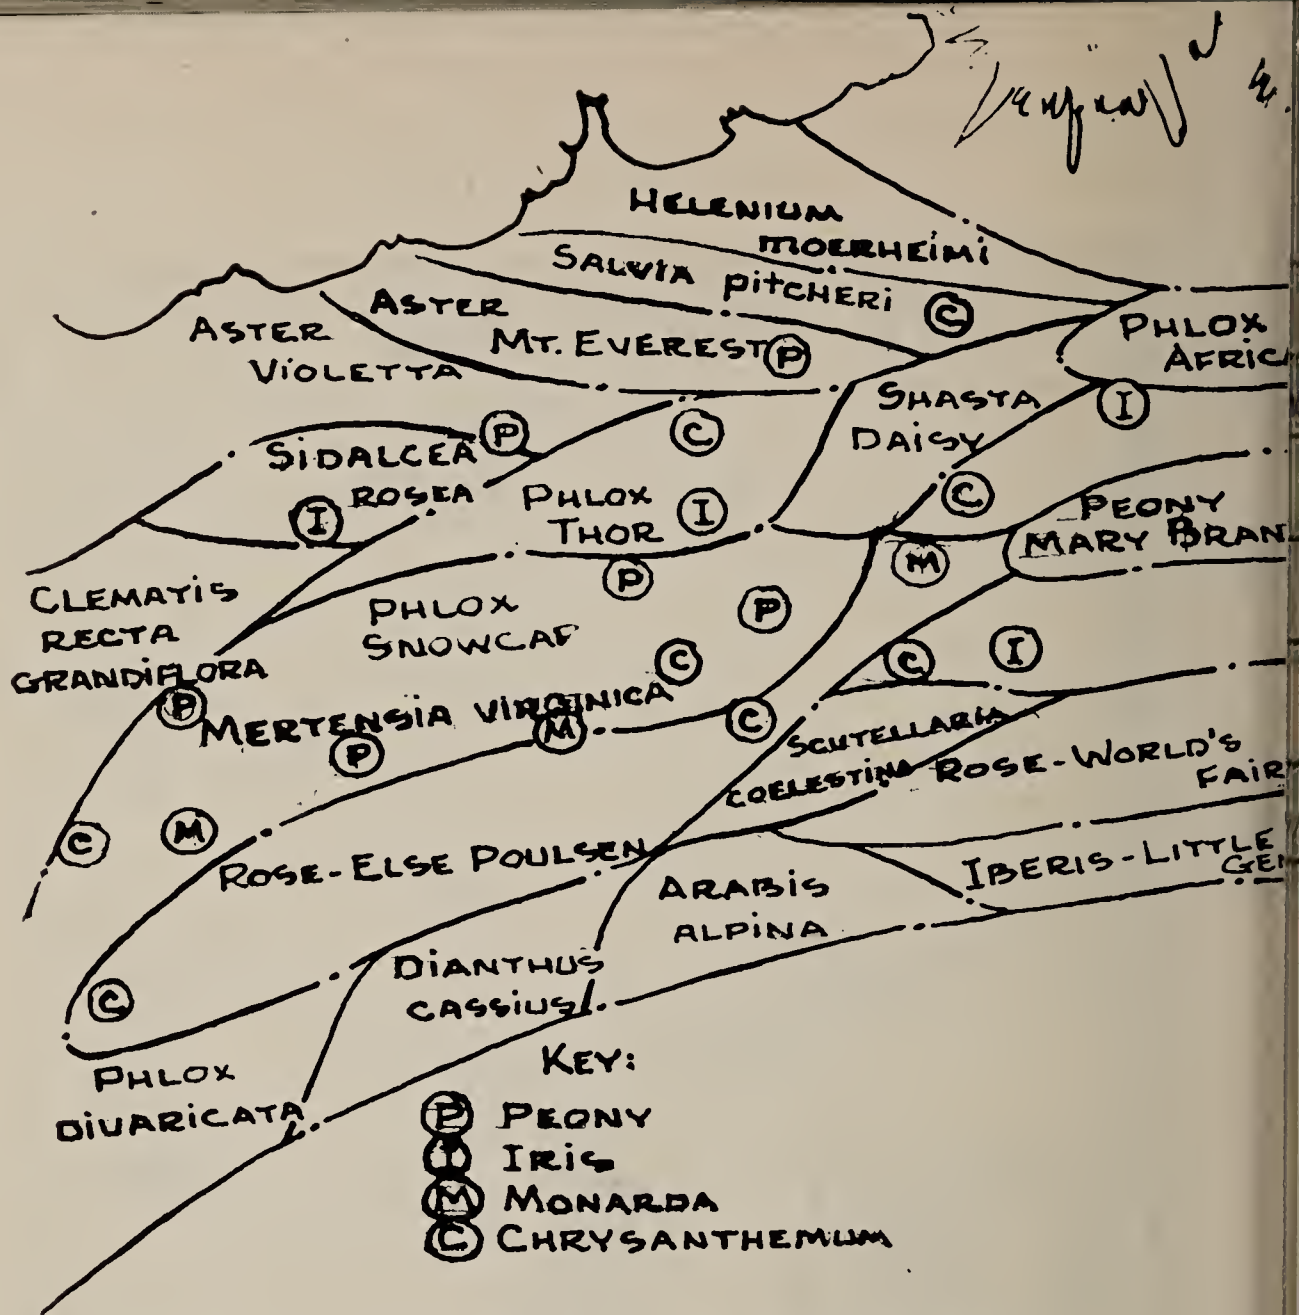 HELENIUM
MOERHEIMI
SALVIA PITCHERI
C
ASTER
MT. EVEREST
P
ASTER
VIOLETTA
PHLOX
AFRIC
SHASTA
DAISY
I
SIDALCEA
ROSEA
P
I
C
PHLOX
THOR
I
C
PEONY
MARY BRAN
M
P
CLEMATIS
RECTA
GRANDIFLORA
PHLOX
SNOWCAP
P
C
C
I
P
MERTENSIA VIRGINICA
P
M
C
SCUTELLARIA
COELESTINA
ROSE-WORLD'S
FAIR
C
M
ROSE-ELSE POULSEN
IBERIS-LITTLE
GE
ARABIS
ALPINA
DIANTHUS
CASSIUS
C
PHLOX
DIVARICATA
KEY:
P PEONY
I IRIS
M MONARDA
C CHRYSANTHEMUM